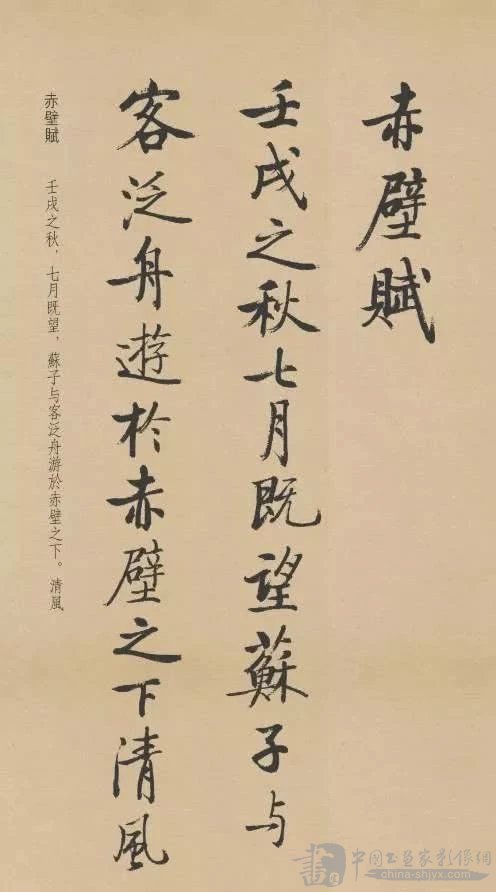 赤壁賦
壬戌之秋七月既望蘇子与
客泛舟遊於赤壁之下清風
赤壁賦　壬戌之秋，七月既望，蘇子与客泛舟游於赤壁之下。清風
中國書画家影像網
china-shjyx.com